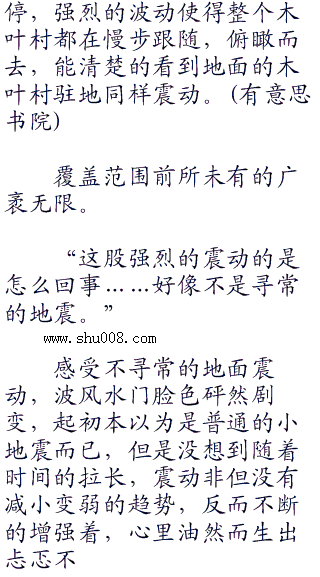 停，强烈的波动使得整个木
叶村都在慢步跟随，俯瞰而
去，能清楚的看到地面的木
叶村驻地同样震动。(有意思
书院)
覆盖范围前所未有的广
袤无限。
“这股强烈的震动的是
怎么回事……好像不是寻常
的地震。”
www.shu008.com
感受不寻常的地面震
动，波风水门脸色砰然剧
变，起初本以为是普通的小
地震而已，但是没想到随着
时间的拉长，震动非但没有
减小变弱的趋势，反而不断
的增强着，心里油然而生出
忐忑不